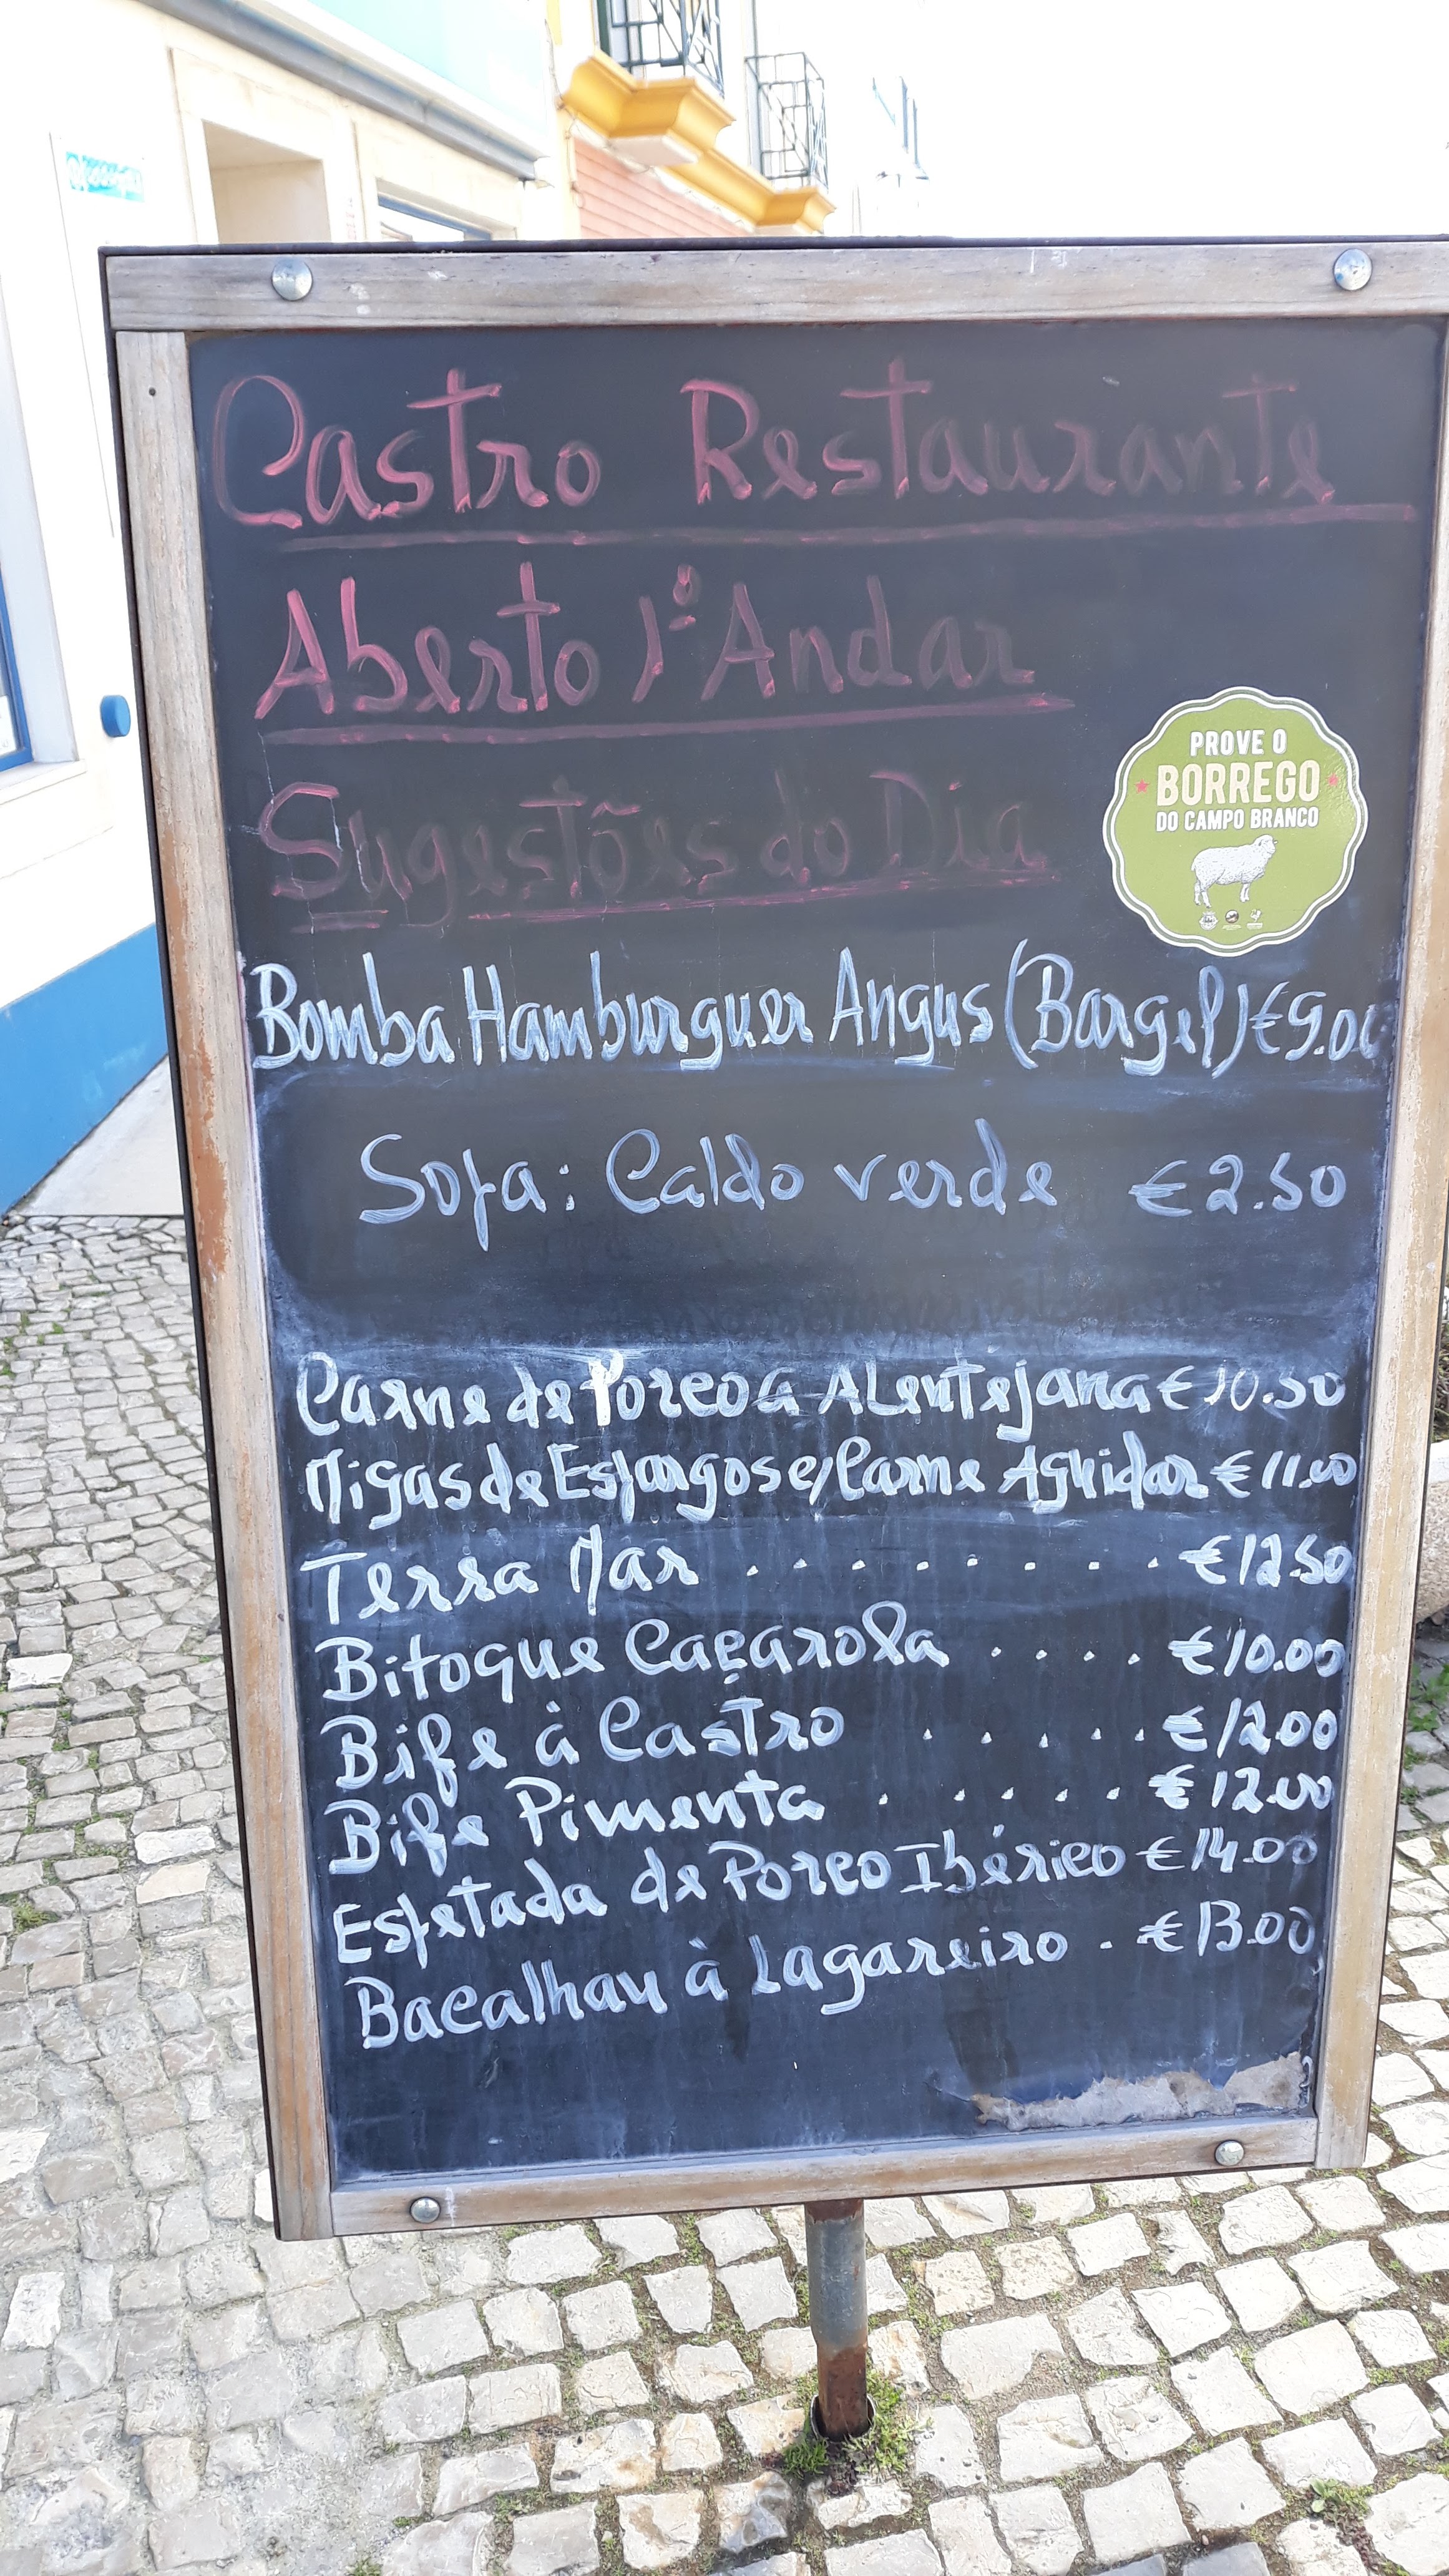 Castro Restaurante
Aberto 1º Andar
Sugestões do Dia
PROVE O
BORREGO
DO CAMPO BRANCO
Bomba Hamburguer Angus (Bargel) €9.00
Sopa: Caldo verde €2.50
Carne de Porco à Alentejana €10.50
Migas de Espargos c/ Carne Aguidar €11.00
Terra Mar . . . . . . . . €12.50
Bitoque Caçarola . . . . €10.00
Bife à Castro . . . . . €12.00
Bife Pimenta . . . . . €12.00
Espetada de Porco Ibérico €14.00
Bacalhau à Lagareiro . €13.00